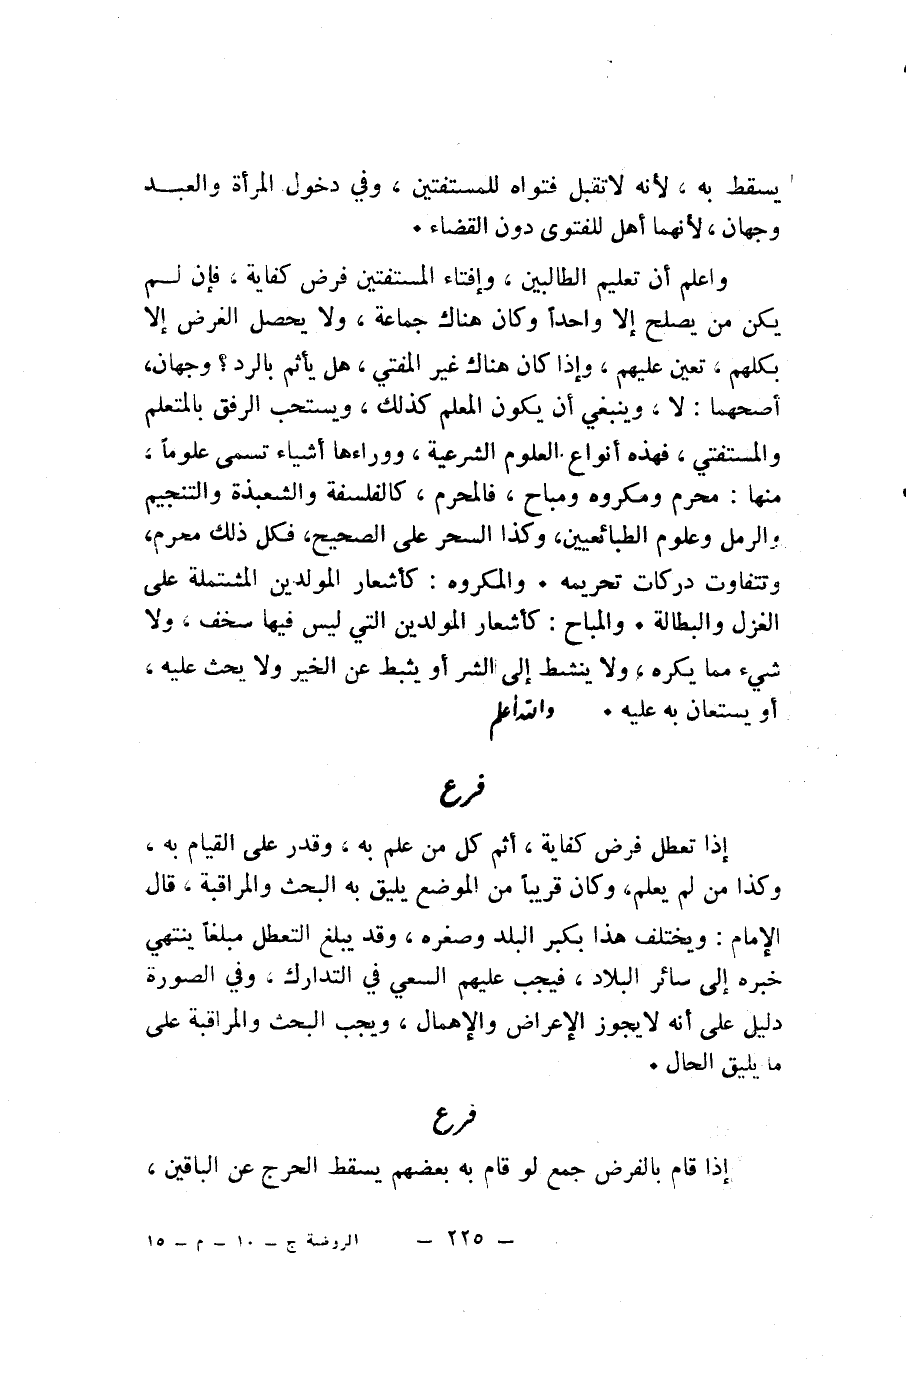 يسقط به ، لأنه لاتقبل فتواه للمستفتين ، وفي دخول المرأة والعبـــد
وجهان ، لأنهما أهل للفتوى دون القضاء •
واعلم أن تعليم الطالبين ، وإفتاء المستفتين فرض كفاية ، فإن لــم
يكن من يصلح إلا واحداً وكان هناك جماعة ، ولا يحصل الغرض إلا
بكلهم ، تعين عليهم ، وإذا كان هناك غير المفتي ، هل يأثم بالرد ؟ وجهان،
أصحهما : لا ، وينبغي أن يكون المعلم كذلك ، ويستحب الرفق بالمتعلم
والمستفتي ، فهذه أنواع العلوم الشرعية ، ووراءها أشياء تسمى علوماً ،
منها : محرم ومكروه ومباح ، فالمحرم ، كالفلسفة والشعبذة والتنجيم
والرمل وعلوم الطبائعيين، وكذا السحر على الصحيح، فكل ذلك محرم،
وتتفاوت دركات تحريمه • والمكروه : كأشعار المولدين المشتملة على
الغزل والبطالة • والمباح : كأشعار المولدين التي ليس فيها سخف ، ولا
شيء مما يكره ، ولا ينشط إلى الشر أو يثبط عن الخير ولا يحث عليه ،
أو يستعان به عليه • والله أعلم
فرع
إذا تعطل فرض كفاية ، أثم كل من علم به ، وقدر على القيام به ،
وكذا من لم يعلم، وكان قريباً من الموضع يليق به البحث والمراقبة ، قال
الإمام : ويختلف هذا بكبر البلد وصغره ، وقد يبلغ التعطل مبلغاً ينتهي
خبره إلى سائر البلاد ، فيجب عليهم السعي في التدارك ، وفي الصورة
دليل على أنه لايجوز الإعراض والإهمال ، ويجب البحث والمراقبة على
ما يليق الحال •
فرع
إذا قام بالفرض جمع لو قام به بعضهم يسقط الحرج عن الباقين ،
– ٢٢٥ – الروضة ج – ١٠ – م – ١٥